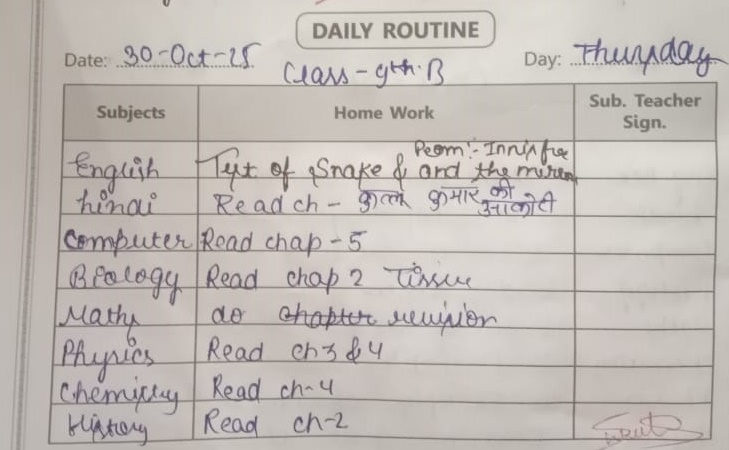 DAILY ROUTINE
Date: 30-Oct-25 Day: Thursday
Class-9th.B
Subjects Home Work Sub. Teacher Sign.
Poem:- Innisfree
English Tyt of Snake & and the mirror
hindi Read ch - की
Computer Read chap-5
Biology Read chap 2 Tissue
Maths do chapter revision
Physics Read ch 3 & 4
Chemistry Read ch-4
History Read ch-2